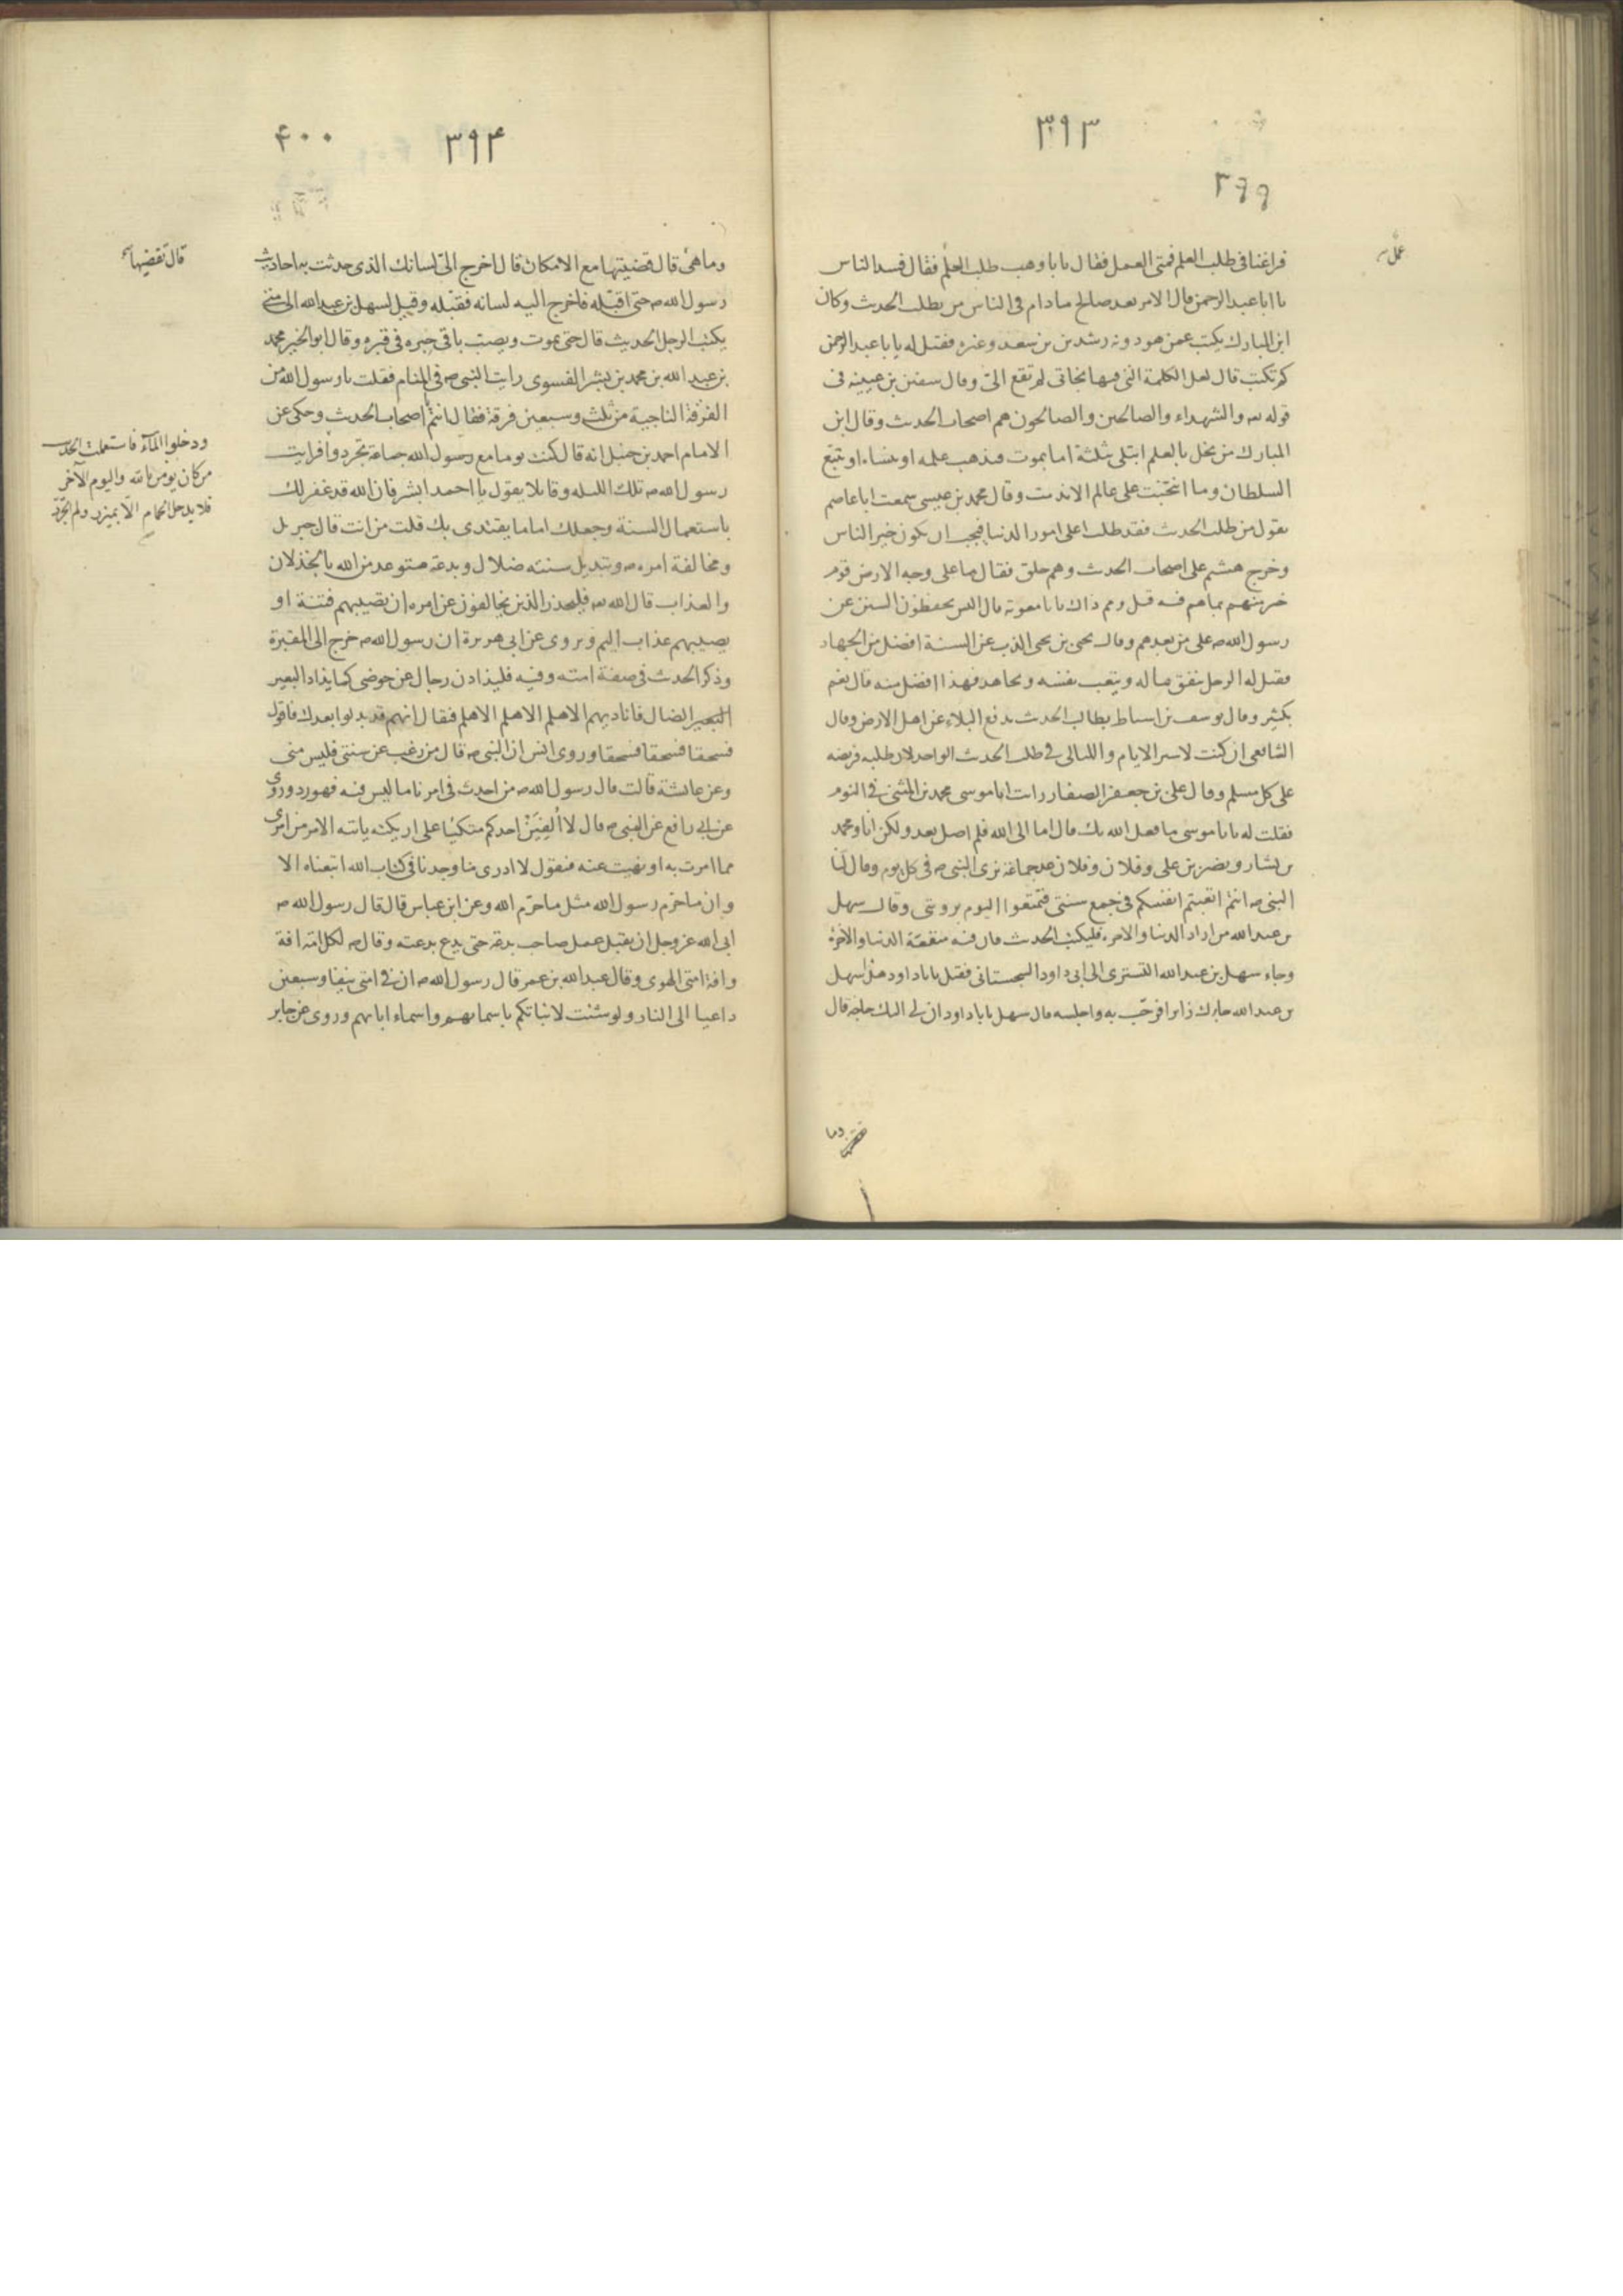 ٣٩٣
٣٩٩
عمل
فراغنا فى طلب العلم فمتى العمل فقال يابا وهب طلب العلم فقال فسد الناس
يا ابا عبد الرحمن قال الامر بعد صالح مادام فى الناس من يطلب الحديث وكان
ابن المبارك يكتب عمن هو دونه رشدين بن سعد وغيره فقيل له يابا عبد الرحمن
كم تكتب قال لعل الكلمة التى فيها نجاتى لم تقع الىّ وقال سفين بن عيينه فى
قوله والشهداء والصالحين والصالحون هم اصحاب الحديث وقال ابن
المبارك من بخل بالعلم ابتلى بثلثة اما بموت فيذهب علمه او ينساه او يتبع
السلطان وما على عالم وقال محمد بن عيسى سمعت ابا عاصم
يقول من طلب الحديث فقد طلب اعلى امور الدنيا فيجب ان يكون خير الناس
وخرج هشيم على اصحاب الحديث وهم حلق فقال ما على وجه الارض قوم
خير منهم بما هم فيه قيل ومم ذاك يابا معوية قال اليس يحفظون السنن عن
رسول الله ص على من بعدهم وقال يحيى بن يحيى الذب عن السنة افضل من الجهاد
فقيل له الرجل ينفق ماله ويتعب نفسه ويجاهد فهذا افضل منه قال نعم
بكثير وقال يوسف بن اسباط بطالب الحديث يدفع البلاء عن اهل الارض وقال
الشافعى ان كنت لاسير الايام والليالى فى طلب الحديث الواحد لان طلبه فريضه
على كل مسلم وقال على بن جعفر الصفار رايت ابا موسى محمد بن المثنى فى النوم
فقلت له يابا موسى ما فعل الله بك قال اما الى الله فلم اصل بعد ولكن انا ومحمد
بن بشار ونصر بن على وفلان وفلان عد جماعة نرى النبى ص فى كل يوم وقال لنا
النبى ص انتم اتعبتم انفسكم فى جمع سنتى فتمتعوا اليوم برويتى وقال سهل
بن عبد الله من اراد الدنيا والاخرة فليكتب الحديث فان فيه منفعة الدنيا والاخرة
وجاء سهل بن عبد الله التسترى الى ابى داود السجستانى فقيل يابا داود هذا سهل
بن عبد الله جاءك زائرا فرحّب به واجلسه قال سهل يابا داود ان لى اليك حاجة قال
وما
٣٩۴
۴٠٠
وما هى قال قضيتها مع الامكان قال اخرج الىّ لسانك الذى حدثت به احاديث
قال تقضيها
رسول الله ص حتى اقبّله فاخرج اليه لسانه فقبّله وقيل لسهل بن عبد الله الى متى
يكتب الرجل الحديث قال حتى يموت ويصبّ باقى حبره فى قبره وقال ابو الخير محمد
بن عبد الله بن محمد بن بشر الفسوى رايت النبى ص فى المنام فقلت يا رسول الله من
الفرقة الناجية من ثلث وسبعين فرقة فقال انتم اصحاب الحديث وحكى عن
الامام احمد بن حنبل انه قال كنت يوما مع رسول الله جماعة تجردوا فرايت
ودخلوا المآء فاستعملت الحديث
من كان يؤمن بالله واليوم الآخر
فلا يدخل الحمام الّا بميزر ولم اتجرّد
رسول الله ص تلك الليله وقايلا يقول يا احمد ابشر فان الله قد غفر لك
باستعمال السنة وجعلك اماما يقتدى بك قلت من انت قال جبريل
ومخالفة امره ص وتبديل سنته ضلال وبدعة متوعد من الله بالخذلان
والعذاب قال الله فليحذر الذين يخالفون عن امره ان تصيبهم فتنة او
يصيبهم عذاب اليم ويروى عن ابى هريرة ان رسول الله ص خرج الى المقبرة
وذكر الحديث فى صفة امته وفيه فليذادن رجال عن حوضى كما يذاد البعير
البعير الضال فاناديهم الا هلم الا هلم الا هلم فقال انهم قد بدلوا بعدك فاقول
فسحقا فسحقا فسحقا وروى انس ان النبى ص قال من رغب عن سنتى فليس منى
وعن عائشة قالت قال رسول الله ص من احدث فى امرنا ما ليس فيه فهو رد وروى
عن ابى رافع عن النبى ص قال لا اُلفِيَنّ احدكم متكئا على اريكته ياتيه الامر من امرى
مما امرت به او نهيت عنه فيقول لا ادرى ما وجدنا فى كتاب الله اتبعناه الا
وان ما حرّم رسول الله مثل ما حرّم الله وعن ابن عباس قال قال رسول الله ص
ابى الله عز وجل ان يقبل عمل صاحب بدعة حتى يدع بدعته وقال ص لكل امة افة
وافة امتى الهوى وقال عبد الله بن عمر قال رسول الله ص ان فى امتى نيفا وسبعين
داعيا الى النار ولو شئت لانباتكم باسمائهم واسماء ابائهم وروى عن جابر